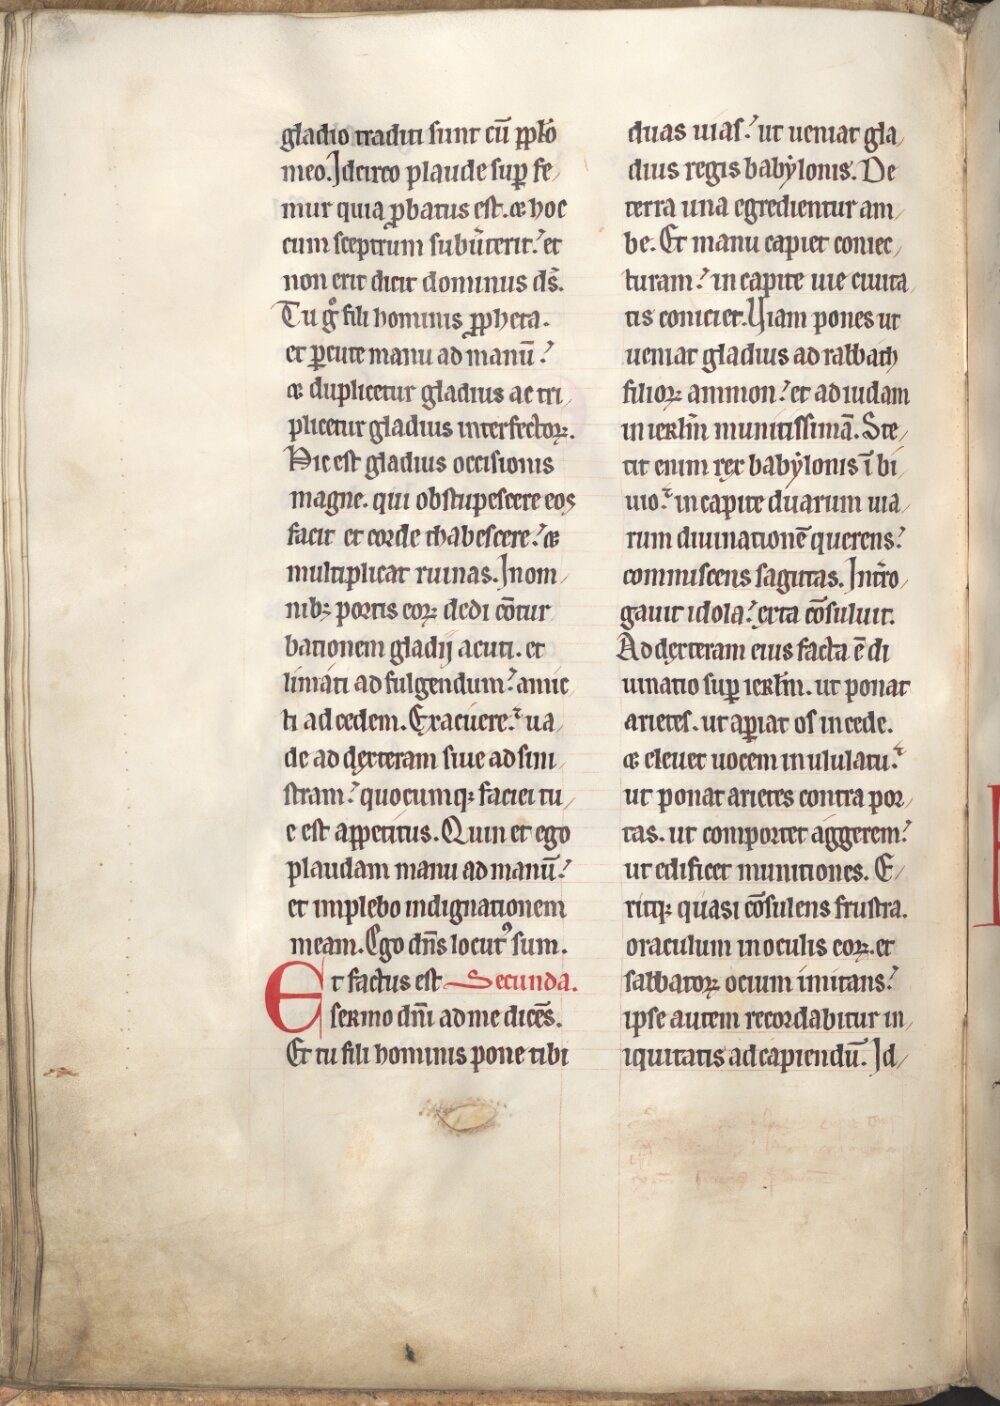 gladio traditi sunt cū pp̄lo
meo. Idcirco plaude sup̱ fe/
mur quia ꝓbatus est. ⁊ hoc
cum sceptrum subūterit.ˀ et
non erit dicit dominus dꝰ̄s.
Tu gͦ fili hominis ꝓpheta.
et ꝑcute manu ad manū.ˀ
⁊ duplicetur gladius ac tri/
plicetur gladius interfectoꝝ.
Hic est gladius occisionis
magne. qui obstupescere eos
facit et corde thabescere.ˀ ⁊
multiplicat ruinas. In om/
nibꝫ portis eoꝝ dedi cōtur
bationem gladij acuti. et
limati ad fulgendum.ˀ amic
ti ad cedem. Exacuere.ˀ ua/
de ad dexteram siue ad sini/
stram.ˀ quocumqꝫ faciei tu/
e est appetitus. Quin et ego
plaudam manu ad manū.ˀ
et implebo indignationem
meam. Ego dn̄s locutꝰ sum.
Et factus est Secunda.
sermo dn̄i ad me dicēs.
Et tu fili hominis pone tibi
duas uias.ˀ ut ueniat gla/
dius regis babẏlonis. De
terra una egredientur am/
be. Et manu capiet coniec/
turam.ˀ in capite uie ciuita/
tis coniciet. Uiam pones ut
ueniat gladius ad rabbath
filioꝝ ammon.ˀ et ad iudam
in ierl̄m munitissimā. Ste/
tit enim rex babẏlonis ī bi/
uio.ˀ in capite duarum uia/
rum diuinationē querens.ˀ
commiscens sagittas. Int̄ro/
gauit idola.ˀ exta cōsuluit.
Ad dexteram eius facta ē di
uinatio sup̱ ierl̄m. ut ponat
arietes. ut aꝑiat os in cede.
⁊ eleuet uocem in ululatu.ˀ
ut ponat arietes contra por/
tas. ut comportet aggerem.ˀ
ut edificet munitiones. E/
ritqꝫ quasi cōsulens frustra.
oraculum in oculis eoꝝ. et
sabbatoꝝ ocium imitans.ˀ
ipse autem recordabitur in/
iquitatis ad capiendū. Id/